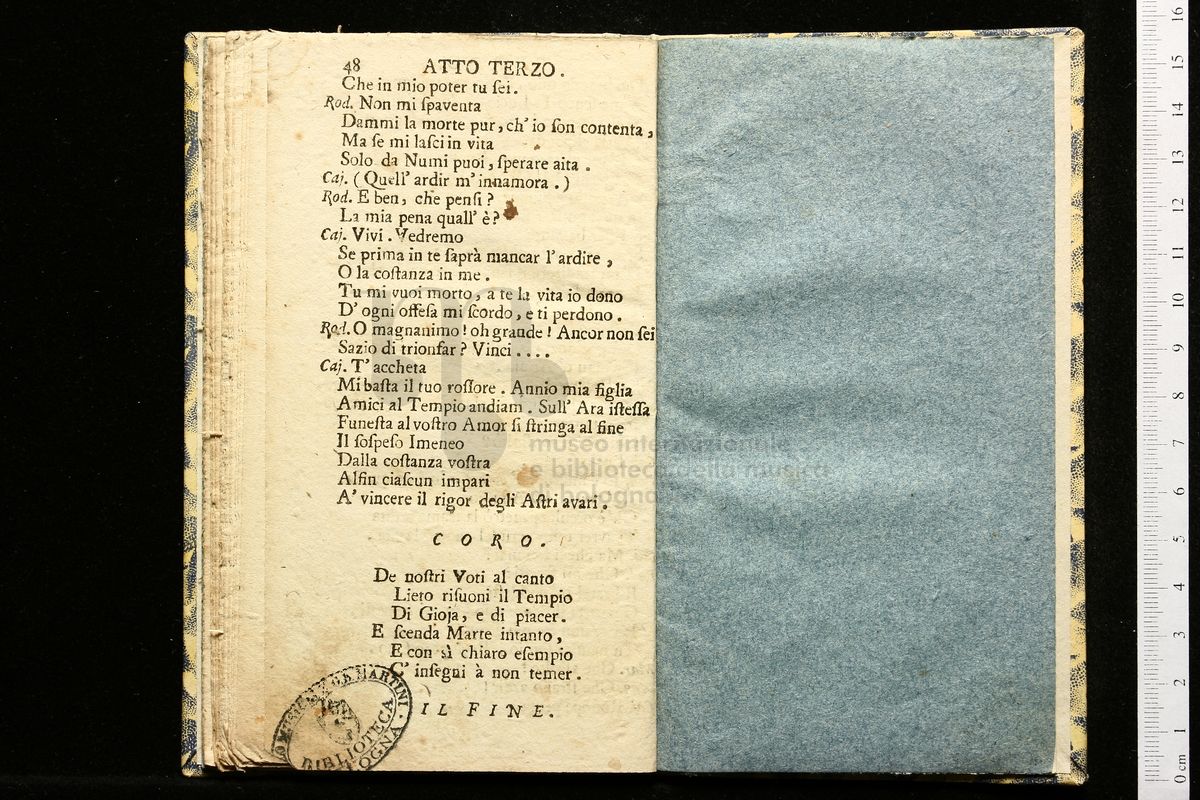 48 ATTO TERZO.
Che in mio poter tu ſei.
Rod. Non mi ſpaventa
Dammi la morte pur, ch' io ſon contenta,
Ma ſe mi laſci in vita
Solo da Numi puoi, ſperare aita.
Caj. (Quell' ardir m' innamora.)
Rod. E ben, che penſi?
La mia pena quall' è?
Caj. Vivi. Vedremo
Se prima in te ſaprà mancar l' ardire,
O la coſtanza in me.
Tu mi vuoi morto, a te la vita io dono
D' ogni offeſa mi ſcordo, e ti perdono.
Rod. O magnanimo! oh grande! Ancor non ſei
Sazio di trionfar? Vinci....
Caj. T' accheta
Mi baſta il tuo roſſore. Annio mia figlia
Amici al Tempio andiam. Sull' Ara iſteſſa
Funeſta al voſtro Amor ſi ſtringa al fine
Il ſoſpeſo Imeneo
Dalla coſtanza voſtra
Alfin ciaſcun impari
A' vincere il rigor degli Aſtri avari.
CORO.
De noſtri Voti al canto
Lieto riſuoni il Tempio
Di Gioja, e di piacer.
E ſcenda Marte intanto,
E con sì chiaro eſempio
C' inſegni à non temer.
IL FINE.
MARTINI
BIBLIOTECA
museo internazionale
e biblioteca della musica
di bologna
0 cm 1 2 3 4 5 6 7 8 9 10 11 12 13 14 15 16